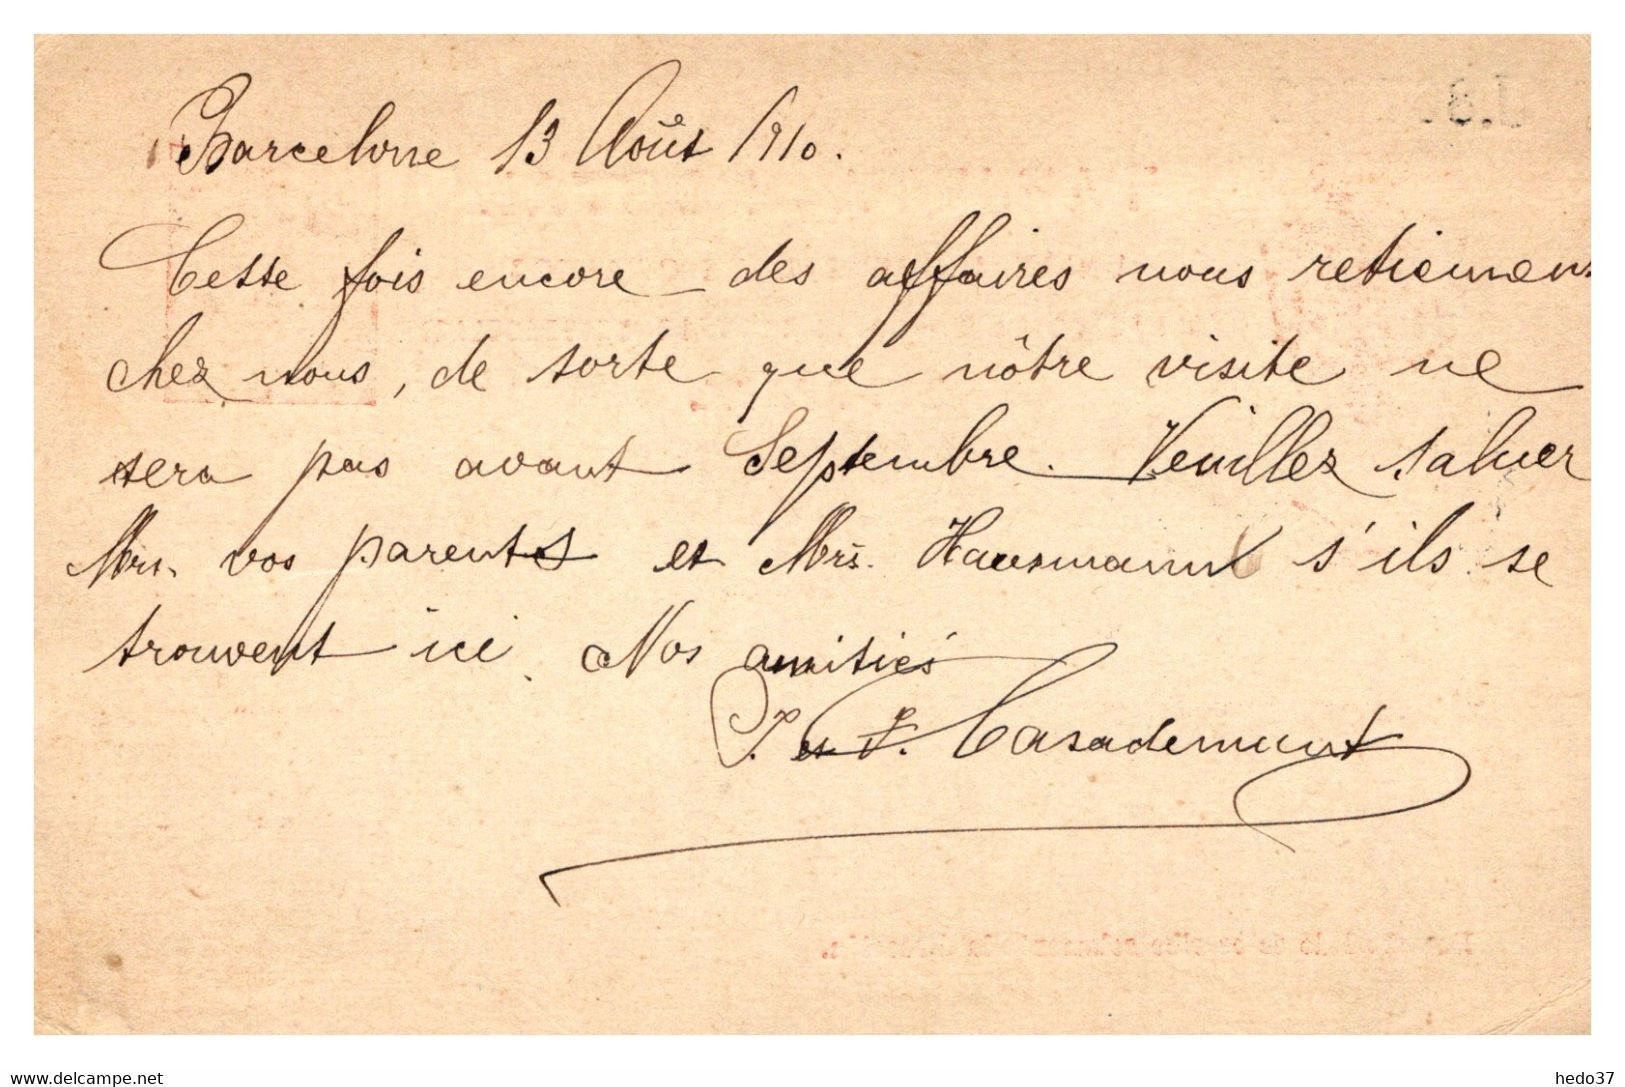 Barcelone 13 Août 1910.
Cette fois encore des affaires nous retiennen
chez nous, de sorte que nôtre visite ne
sera pas avant Septembre. Veuillez saluer
Mrs. vos parents et Mrs. Hausmann s'ils se
trouvent ici. Nos amitiés
P. et F. Casademunt
www.delcampe.net
hedo37